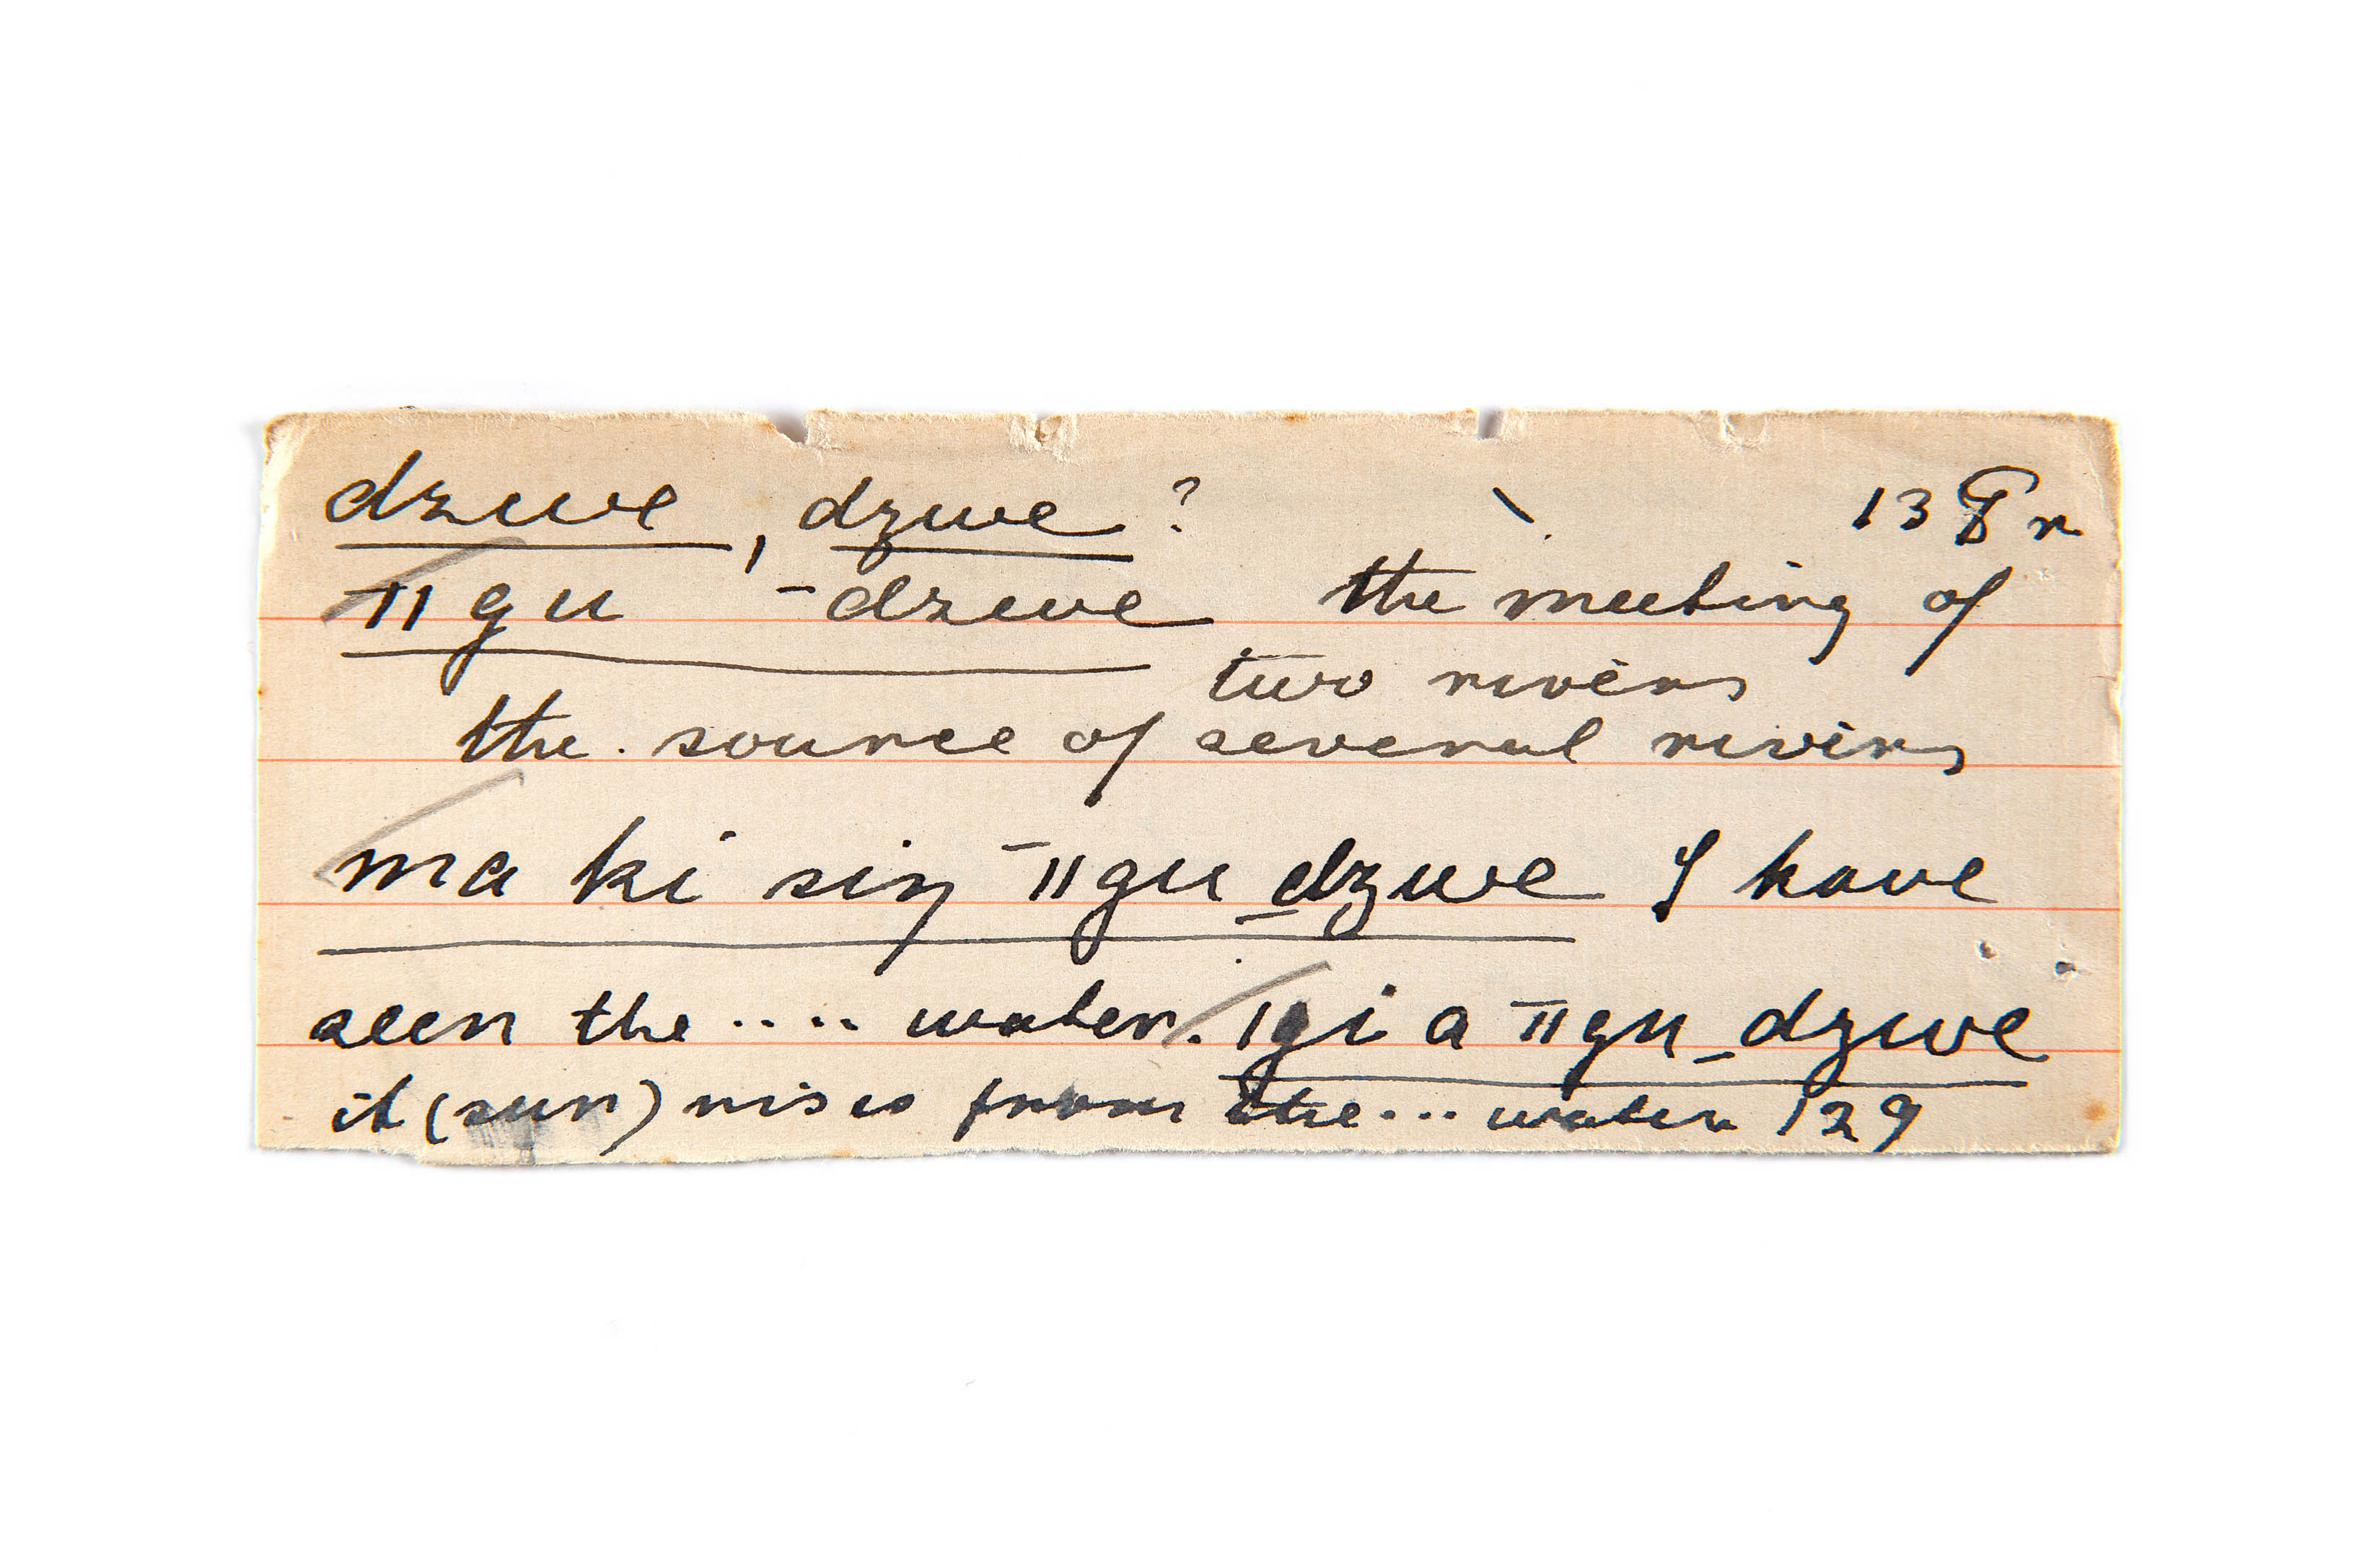 dzwe, dzwe?
ǁgu -dzwe the meeting of
two rivers
the source of several rivers
ma ki siŋ ¯ǁgu_dzwe I have
seen the .... water. ǀgi a ¯ǁgu_dzwe
it (sun) rises from the ... water 129